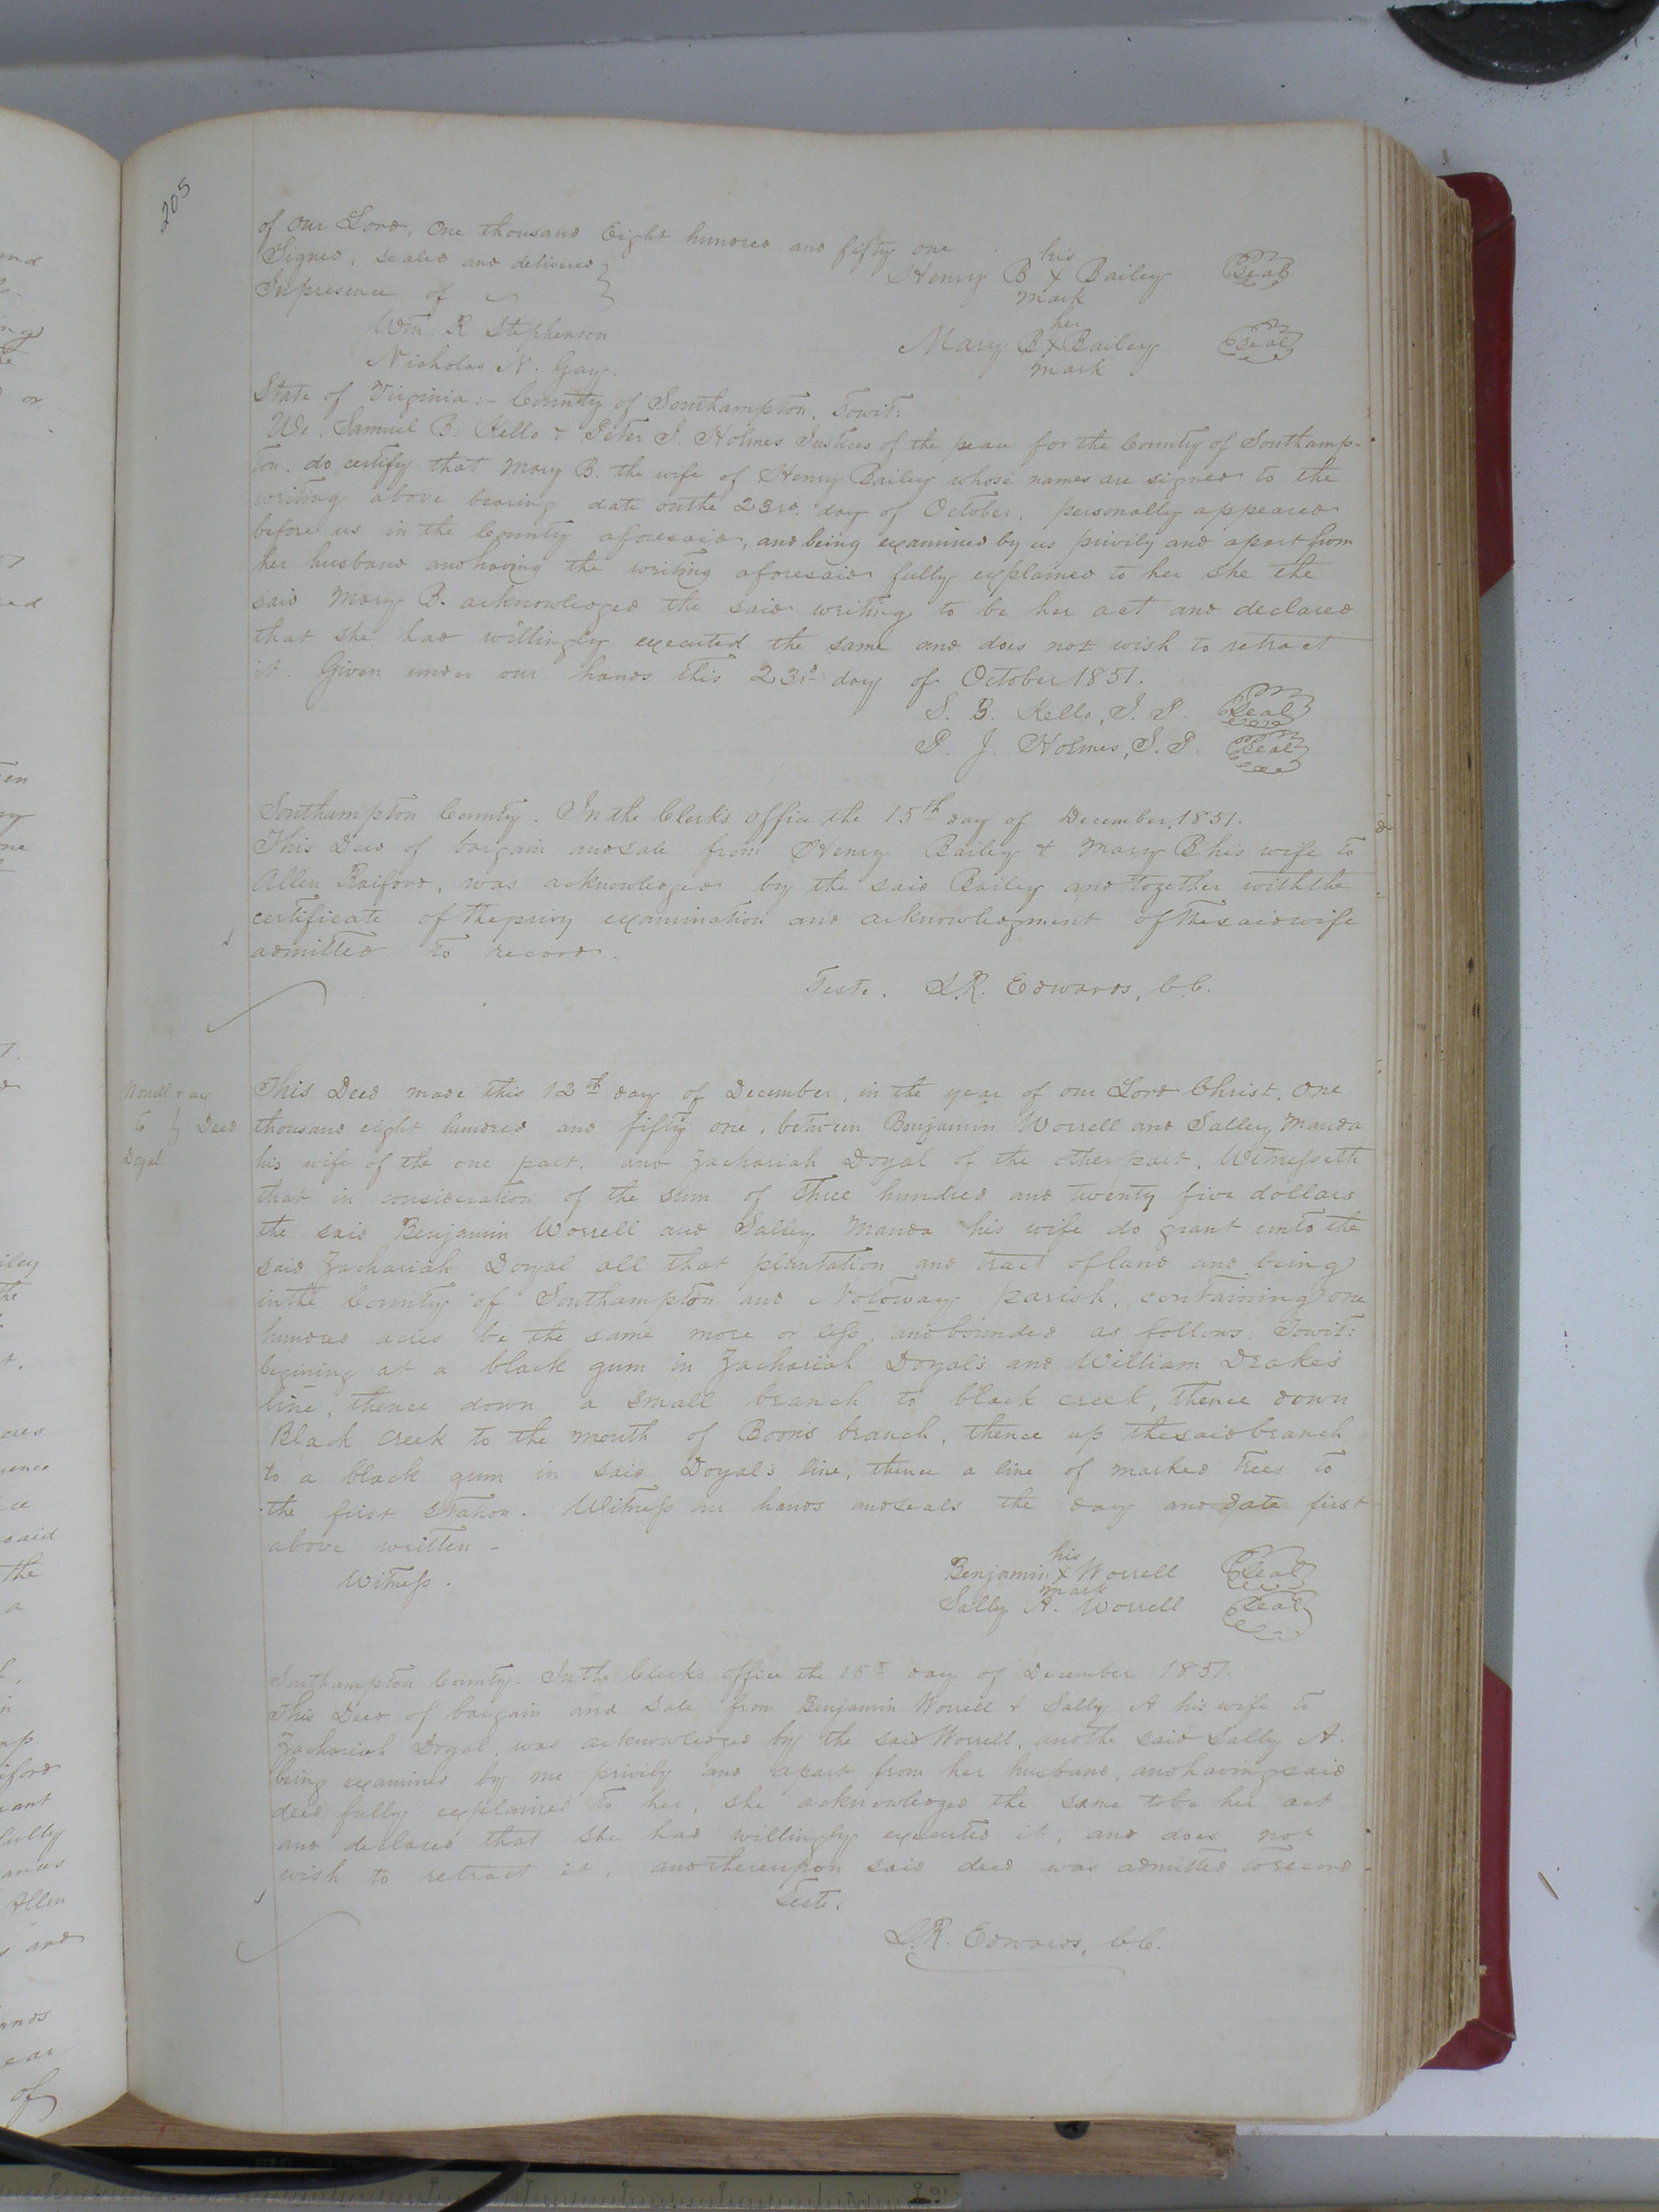 205
of Our Lord, One thousand Eight hundred and fifty one
Signed, sealed and delivered }
In presence of }
Wm. R Stephenson
Nicholas N. Gay.
his
Henry B X Bailey Seal
mark
her
Mary B X Bailey Seal
mark
State of Virginia:- County of Southampton, Towit:
We, Samuel B. Kello & Peter J. Holmes Justices of the peace for the County of Southamp-
ton, do certify that Mary B. the wife of Henry Bailey whose names are signed to the
writing above bearing date on the 23rd. day of October, personally appeared
before us in the County aforesaid, and being examined by us privily and apart from
her husband and having the writing aforesaid fully explained to her she the
said Mary B. acknowledged the said writing to be her act and declared
that she had willingly executed the same and does not wish to retract
it. Given under our hands this 23rd day of October 1851.
S. B. Kello, J. P. Seal
P. J. Holmes, J. P. Seal
Southampton County. In the Clerk's office the 15th day of December, 1851.
This Deed of bargain and sale from Henry Bailey & Mary B his wife to
Allen Raiford, was acknowledged by the said Bailey and together with the
certificate of the privy examination and acknowledgment of the said wife
admitted to record.
Teste. L.R. Edwards, C.C.
Worrell & ux
to } Deed
Doyal
This Deed made this 12th day of December, in the year of our Lord Christ, One
thousand eight hundred and fifty one, between Benjamin Worrell and Salley Manda
his wife of the one part, and Zachariah Doyal of the other part, Witnesseth
that in consideration of the sum of three hundred and twenty five dollars
the said Benjamin Worrell and Salley Manda his wife do grant unto the
said Zachariah Doyal all that plantation and tract of land and being
in the County of Southampton and Notoway parish, containing one
hundred acres be the same more or less, and bounded as follows: Towit:
begining at a black gum in Zachariah Doyal's and William Drake's
line, thence down a small branch to black creek, thence down
Black creek to the mouth of Boon's branch, thence up the said branch
to a black gum in said Doyal's line, thence a line of marked trees to
the first station. Witness our hands and seals the day and date first
above written -
Witness.
his
Benjamin X Worrell Seal
mark
Sally A. Worrell Seal
Southampton County. In the Clerk's office the 15th day of December 1851.
This Deed of bargain and sale from Benjamin Worrell & Sally A his wife to
Zachariah Doyal, was acknowledged by the said Worrell, and the said Sally A.
being examined by me privily and apart from her husband, and having said
deed fully explained to her, she acknowledged the same to be her act
and declared that she had willingly executed it, and does not
wish to retract it. and thereupon said deed was admitted to record
Teste.
L.R. Edwards, C.C.